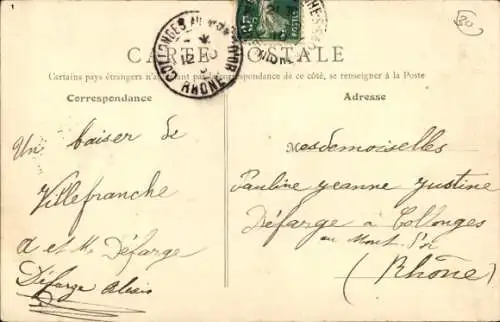 1
20
COLLONGES AU MONT D'OR
12
RHÔNE
CARTE POSTALE
Certains pays étrangers n'acceptant pas la correspondance de ce côté, se renseigner à la Poste
Correspondance
Un baiser de
Villefranche
A et M. Défarge
Défarge Alexis
Adresse
Mesdemoiselles
Pauline Jeanne Justine
Défarge à Collonges
au Mont d'or
(Rhône)